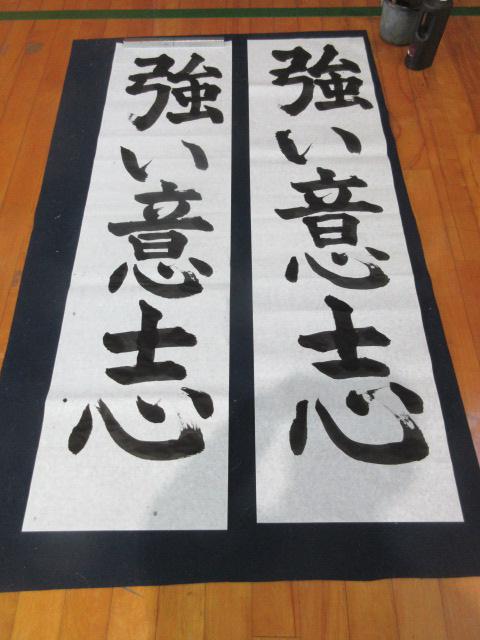 強い意志
強い意志